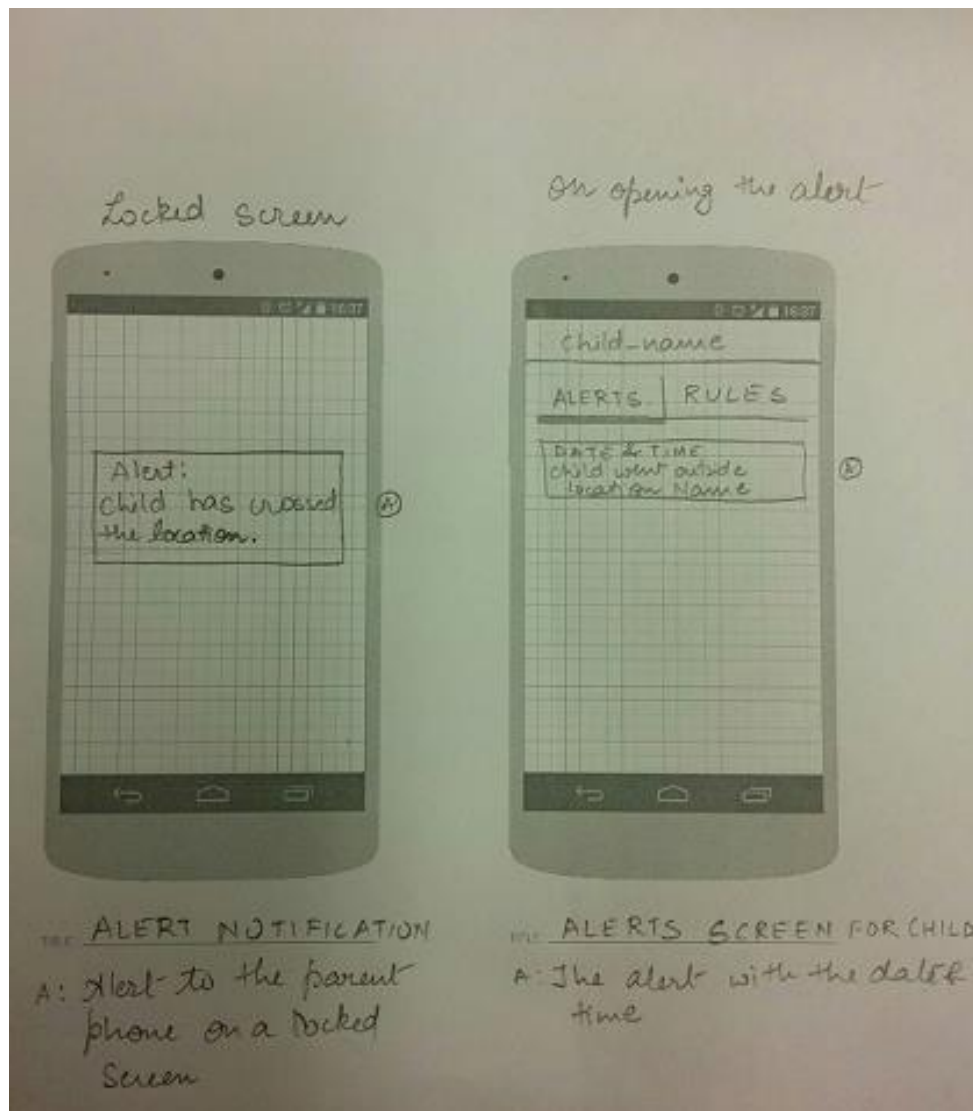 Locked screen
16:37
Alert:
Child has crossed
the location.
A
TITLE ALERT NOTIFICATION
A: Alert to the parent
phone on a Locked
Screen
On opening the alert
16:37
child_name
ALERTS RULES
DATE & TIME
child went outside
location Name
A
TITLE ALERTS SCREEN FOR CHILD
A: The alert with the date &
time